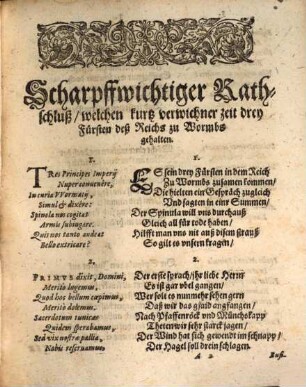 Scharpffwichtiger Rath-
schluß / welchen kurtz verwichner zeit drey
Fürsten deß Reichs zu Wormbs
gehalten.
1.
TRes Principes Imperij
Nuper convenêre,
In curia Wormatij,
Simul & dixêre:
Spinola nos cogitat
Armis subiugare.
Quis nos tanto audeat
Bello extricare?
2.
PRIMUS dixit, Domini,
Meritò lugemus,
Quod hoc bellum cœpimus,
Meritò dolemus.
Sacerdotum tunicas
Quidem sperabamus,
Sed vix nostra pallia,
Nobis reservamus.
1.
ES sein drey Fürsten in dem Reich
Zu Wormbs zusamen kommen /
Die hielten ein Gespräch zugleich
Und sagten in einr Summen /
Der Spinola will uns durchauß
Gleich all für todt haben /
Hilfft man uns nit auß disem strauß
So gilt es unsern kragen /
2.
Der erste sprach / ihr liebe Herrn
Es ist gar übel gangen /
Wer solt es nunmehr sehen gern
Daß wir das gsind angfangen /
Nach Pfaffenröck und Münchskapp
Theten wir sehr starck jagen /
Der Wind hat sich gewendt im schnapp /
Der Hagel soll drein schlagen.
A